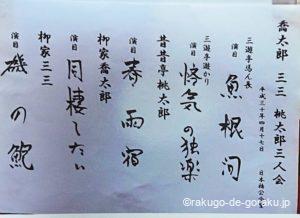 喬太郎 三三 桃太郎三人会
平成三十年四月十七日 日本橋公
三遊亭馬ん長
演目 魚根問
三遊亭遊かり
演目 悋気の独楽
昔昔亭桃太郎
演目 春雨宿
柳家喬太郎
演目 同棲したい
柳家三三
演目 磯の鮑
©rakugo-de-goraku.jp